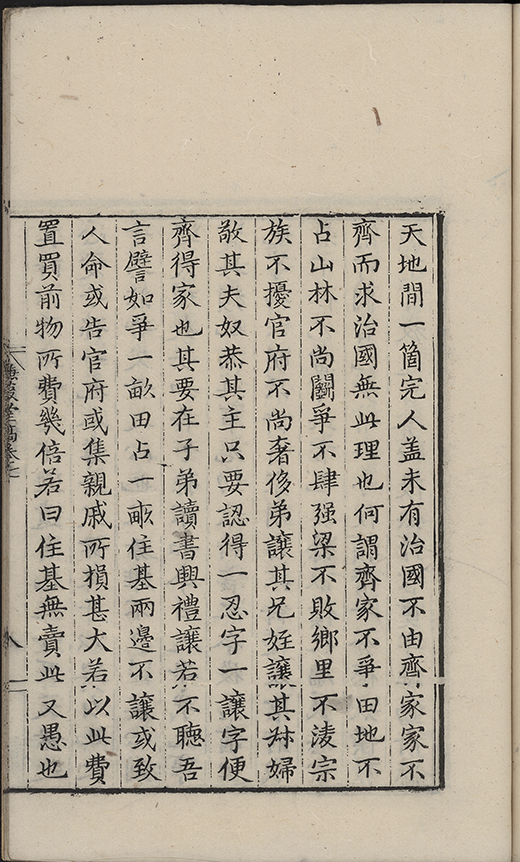 天地間一箇完人盖未有治國不由齊家家不
齊而求治國無此理也何謂齊家不爭田地不
占山林不尚鬬爭不肆强梁不敗鄉里不淩宗
族不擾官府不尚奢侈弟讓其兄姪讓其叔婦
敬其夫奴恭其主只要認得一忍字一讓字便
齊得家也其要在子弟讀書興禮讓若不聽吾
言譬如爭一畝田占一畞住基兩邊不讓或致
人命或告官府或集親戚所損甚大若以此費
置買前物所費幾倍若曰住基無賣此又愚也
八